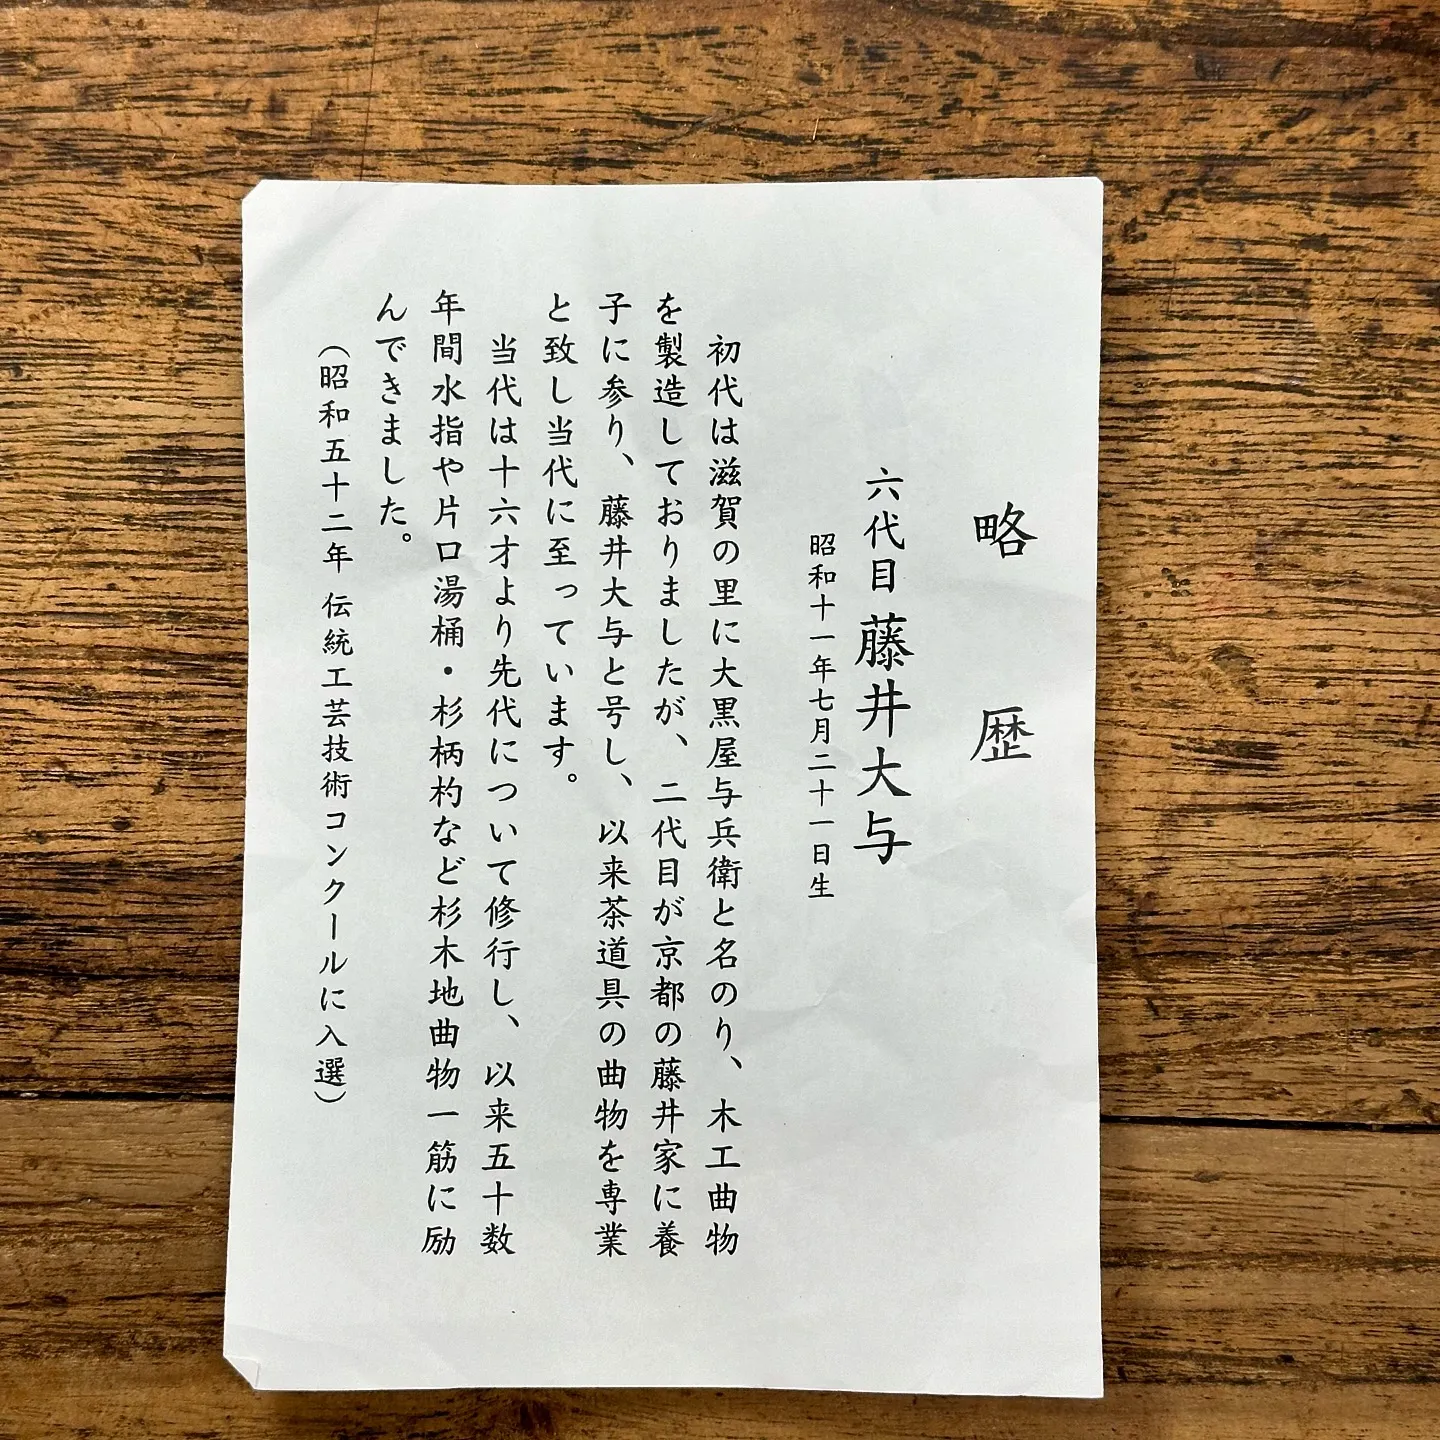 略歴
六代目 藤井大与
昭和十一年七月二十一日生
初代は滋賀の里に大黒屋与兵衛と名のり、木工曲物
を製造しておりましたが、二代目が京都の藤井家に養
子に参り、藤井大与と号し、以来茶道具の曲物を専業
と致し当代に至っています。
当代は十六才より先代について修行し、以来五十数
年間水指や片口湯桶・杉柄杓など杉木地曲物一筋に励
んできました。
（昭和五十二年 伝統工芸技術コンクールに入選）